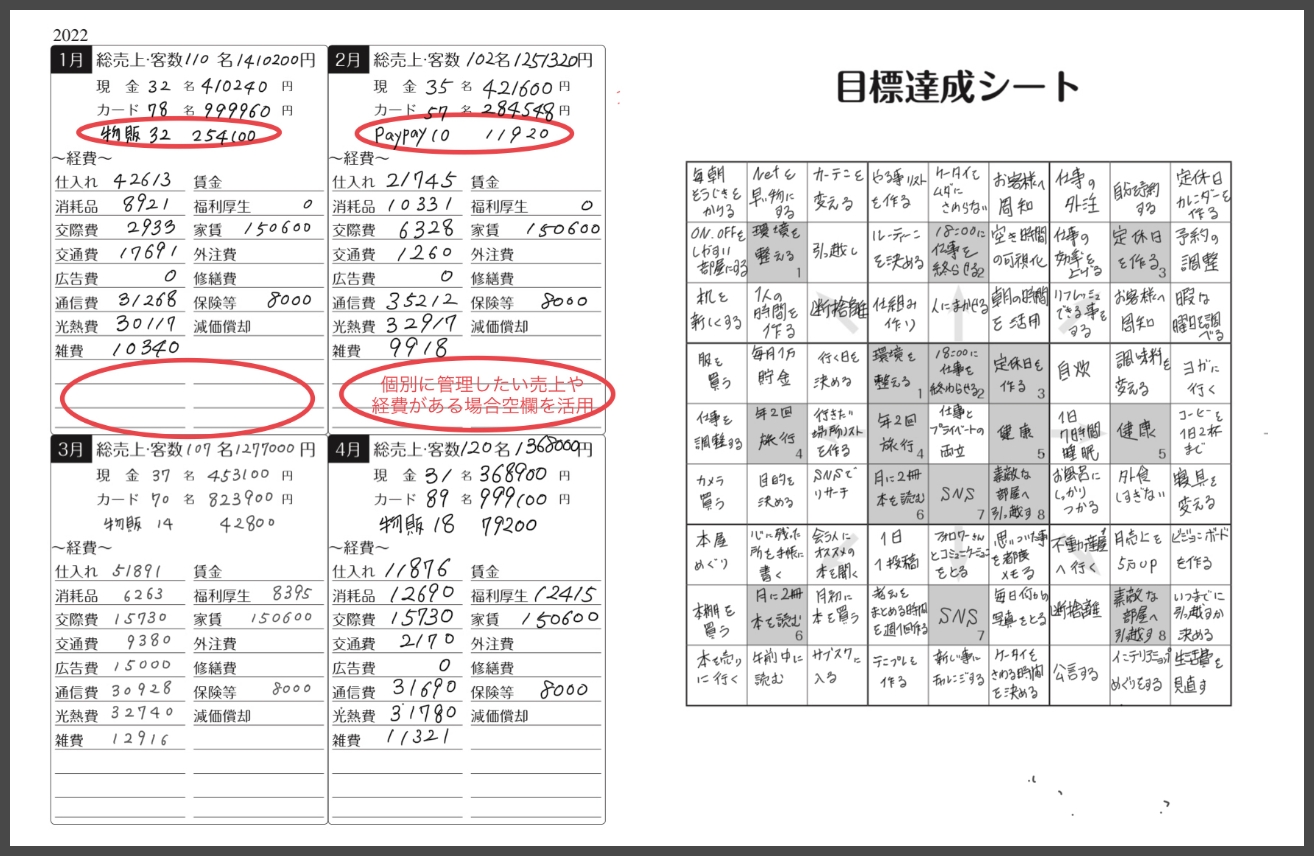 2022
1月 総売上・客数110 名1410200円
現 金 32 名 410240 円
カード 78 名 999960 円
物販 32 254100
～経費～
仕入れ 42613 賃金
消耗品 8921 福利厚生 0
交際費 2933 家賃 150600
交通費 17691 外注費
広告費 0 修繕費
通信費 31268 保険等 8000
光熱費 30117 減価償却
雑費 10340
2月 総売上・客数 102名1251320円
現 金 35 名 421600 円
カード 57 名 284548円
Paypay10 11920
～経費～
仕入れ 21745 賃金
消耗品 10331 福利厚生 0
交際費 6328 家賃 150600
交通費 1260 外注費
広告費 0 修繕費
通信費 35212 保険等 8000
光熱費 32917 減価償却
雑費 9918
個別に管理したい売上や
経費がある場合空欄を活用
3月 総売上・客数107 名1277000 円
現 金 37 名 453100 円
カード 70 名 823900 円
物販 14 42800
～経費～
仕入れ 51891 賃金
消耗品 6263 福利厚生 8395
交際費 15730 家賃 150600
交通費 9380 外注費
広告費 15000 修繕費
通信費 30928 保険等 8000
光熱費 32740 減価償却
雑費 12916
4月 総売上・客数120名1368000円
現 金 31 名 368900 円
カード 89 名 999100 円
物販 18 79200
～経費～
仕入れ 11876 賃金
消耗品 12690 福利厚生 12415
交際費 15730 家賃 150600
交通費 2170 外注費
広告費 0 修繕費
通信費 31690 保険等 8000
光熱費 31780 減価償却
雑費 11321
目標達成シート
毎朝
そうじきを
かける
Netを
早い物に
する
カーテンを
変える
やる事リスト
を作る
ケータイを
ムダに
さわらない
お客様へ
周知
仕事の
外注
する
定休日
カレンダーを
作る
ON.OFFを
しやすい
部屋にする
環境を
整える 1
引っ越し
ルーティーン
を決める
18:00に
仕事を
終らせる2
空き時間
の可視化
仕事の
効率を
上げる
定休日
を作る 3
予約の
調整
机を
新しくする
1人の
時間を
作る
断捨離
仕組み
作り
人にまかせる
朝の時間
を活用
リフレッシュ
できる事を
する
お客様へ
周知
暇な
曜日を調
べる
服を
買う
毎月1万
貯金
行く日を
決める
環境を
整える 1
18:00に
仕事を
終わらせる2
定休日を
作る 3
自炊
調味料を
変える
ヨガに
行く
仕事を
調整する
年2回
旅行 4
行きたい
場所リスト
を作る
年2回
旅行 4
仕事と
プライベートの
両立
健康 5
1日
7時間
睡眠
健康 5
コーヒーを
1日2杯
まで
カメラ
買う
目的を
決める
SNSで
リサーチ
月に2冊
本を読む6
SNS 7
素敵な
部屋へ
引っ越す 8
お風呂に
しっかり
つかる
外食
しすぎない
寝具を
変える
本屋
めぐり
心に残った
所を手帳に
書く
会う人に
オススメの
本を聞く
1日
1投稿
フォロワーさん
とコミュニケーション
をとる
思いついた事
を都度
メモる
不動産屋
へ行く
月売上を
5万UP
ビジョンボード
を作る
本棚を
買う
月に2冊
本を読む
6
月初に
本を買う
考えを
まとめる時間
を週1回作る
SNS 7
毎日何か
写真をとる
断捨離
素敵な
部屋へ
引越す 8
いつまでに
引っ越すか
決める
本を売り
に行く
午前中に
読む
サブスクに
入る
テンプレを
作る
新しい事に
チャレンジする
ケータイを
さわる時間
を決める
公言する
インテリアショップ
めぐりをする
生活費を
見直す